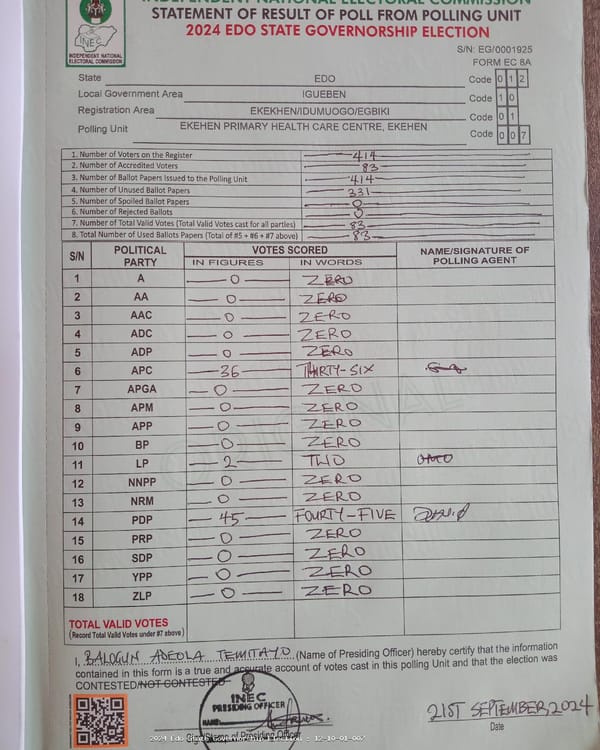 INDEPENDENT NATIONAL ELECTORAL COMMISSION
STATEMENT OF RESULT OF POLL FROM POLLING UNIT
2024 EDO STATE GOVERNORSHIP ELECTION
INEC
INDEPENDENT NATIONAL
ELECTORAL COMMISSION
S/N: EG/0001925
FORM EC 8A
State EDO Code 0 1 2
Local Government Area IGUEBEN Code 1 0
Registration Area EKEKHEN/IDUMUOGO/EGBIKI Code 0 1
Polling Unit EKEHEN PRIMARY HEALTH CARE CENTRE, EKEHEN Code 0 0 7
1. Number of Voters on the Register 414
2. Number of Accredited Voters 83
3. Number of Ballot Papers Issued to the Polling Unit 414
4. Number of Unused Ballot Papers 331
5. Number of Spoiled Ballot Papers 0
6. Number of Rejected Ballots 0
7. Number of Total Valid Votes (Total Valid Votes cast for all parties) 83
8. Total Number of Used Ballots Papers (Total of #5 + #6 + #7 above) 83
S/N POLITICAL PARTY VOTES SCORED NAME/SIGNATURE OF POLLING AGENT
IN FIGURES IN WORDS
1 A 0 ZERO
2 AA 0 ZERO
3 AAC 0 ZERO
4 ADC 0 ZERO
5 ADP 0 ZERO
6 APC 36 THIRTY-SIX
7 APGA 0 ZERO
8 APM 0 ZERO
9 APP 0 ZERO
10 BP 0 ZERO
11 LP 2 TWO
12 NNPP 0 ZERO
13 NRM 0 ZERO
14 PDP 45 FOURTY-FIVE
15 PRP 0 ZERO
16 SDP 0 ZERO
17 YPP 0 ZERO
18 ZLP 0 ZERO
TOTAL VALID VOTES
(Record Total Valid Votes under #7 above)
I, BALOGUN ADEOLA TEMITAYO (Name of Presiding Officer) hereby certify that the information
contained in this form is a true and accurate account of votes cast in this polling Unit and that the election was
CONTESTED/NOT CONTESTED
INEC
PRESIDING OFFICER
NAME
21ST SEPTEMBER 2024
Date
2024 Edo State Governorship Election - 12-10-01-007